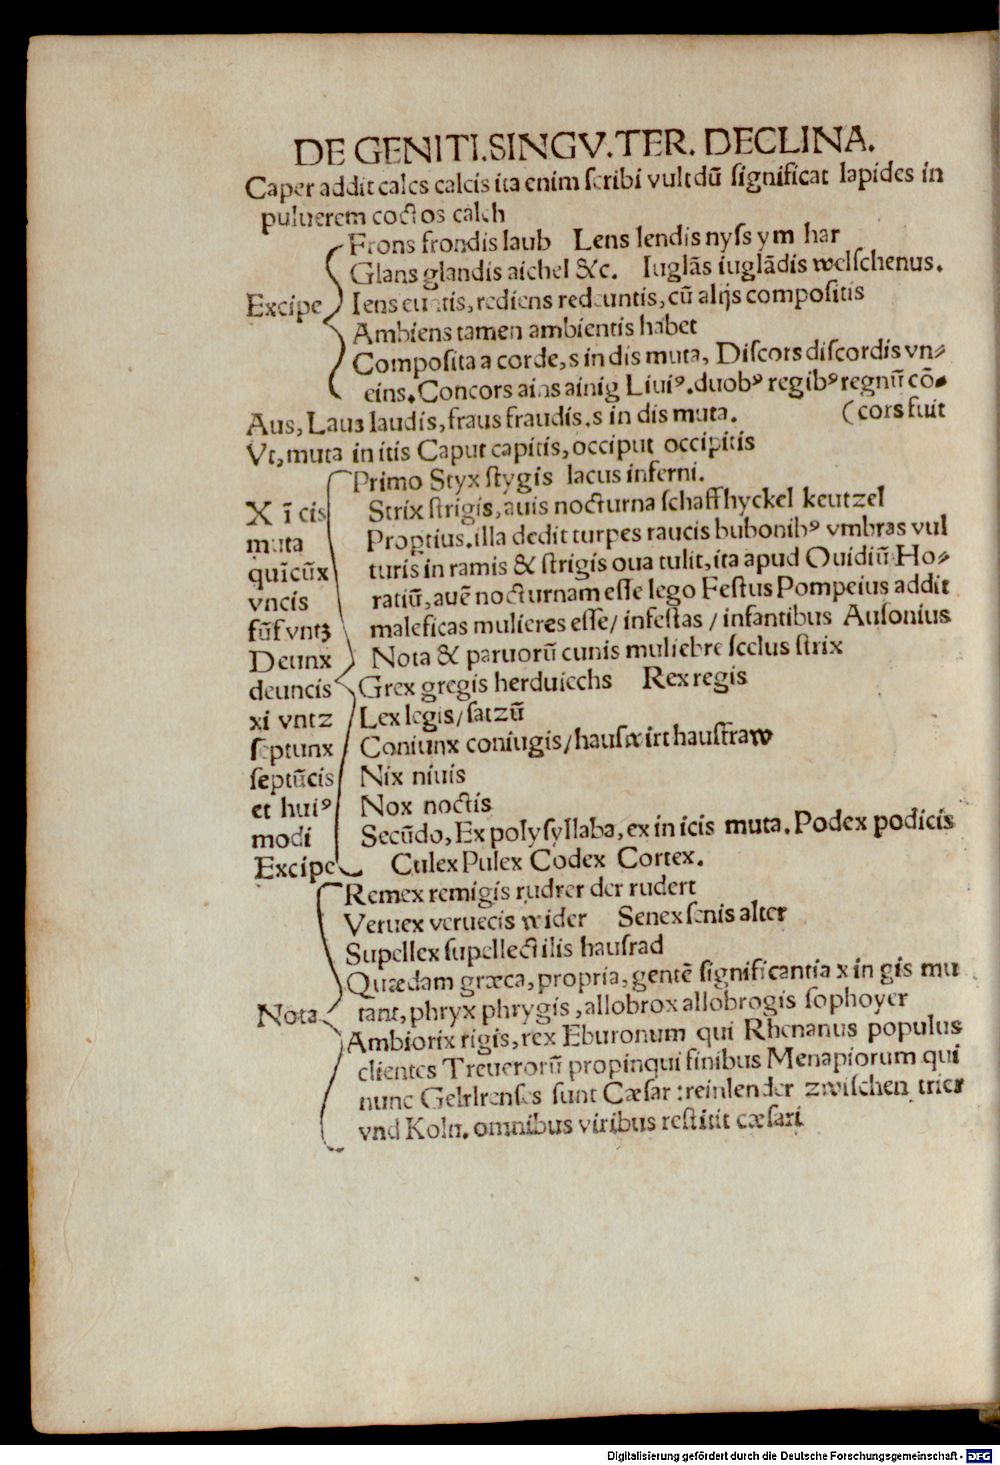 DE GENITI.SINGV.TER. DECLINA.
Caper addit cales calcis ita enim scribi vult dū significat lapides in
puluerem coctos calch
Frons frondis laub Lens lendis nyss ym har
Glans glandis aichel &c. Iuglās iuglādis welschenus.
Excipe Iens euntis, rediens redeuntis, cū alijs compositis
Ambiens tamen ambientis habet
Composita a corde, s in dis muta, Discors discordis vn⸗
eins. Concors ains ainig Liuiꝰ. duobꝰ regibꝰ regnū cō⸗
Aus, Laus laudis, fraus fraudis. s in dis muta. (cors fuit
Vt, muta in itis Caput capitis, occiput occipitis
Primo Styx stygis lacus inferni.
X ī cis Strix strigis, auis nocturna schaffhyckel keutzel
muta Proptius. illa dedit turpes raucis bubonibꝰ vmbras vul
quīcūx turis in ramis & strigis oua tulit, ita apud Ouidiū Ho⸗
vncis ratiū, auē nocturnam esse lego Festus Pompeius addit
fūf vntz maleficas mulieres esse/ infestas / infantibus Ausonius
Deunx Nota & paruorū cunis muliebre scelus strix
deuncis Grex gregis herduiechs Rex regis
xi vntz Lex legis/ satzū
septunx Coniunx coniugis/ hauswirt haussfraw
septūcis Nix niuis
et huiꝰ Nox noctis
modi Secūdo, Ex polysyllaba, ex in icis muta. Podex podicis
Excipe Culex Pulex Codex Cortex.
Remex remigis rudrer der rudert
Veruex veruecis wider Senex senis alter
Supellex supellectilis hausrad
Quædam græca, propria, gentē significantia x in gis mu
Nota tant, phryx phrygis, allobrox allobrogis sophoyer
Ambiorix rigis, rex Eburonum qui Rhenanus populus
clientes Treuerorū propinqui finibus Menapiorum qui
nunc sunt Cæsar : reinlender zwischen trier
vnd Koln. omnibus viribus restitit cæsari
Digitalisierung gefördert durch die Deutsche Forschungsgemeinschaft - DFG